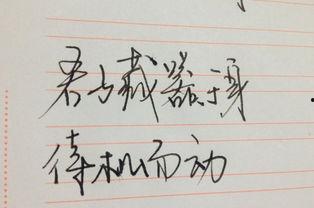 君子藏器于身
待机而动